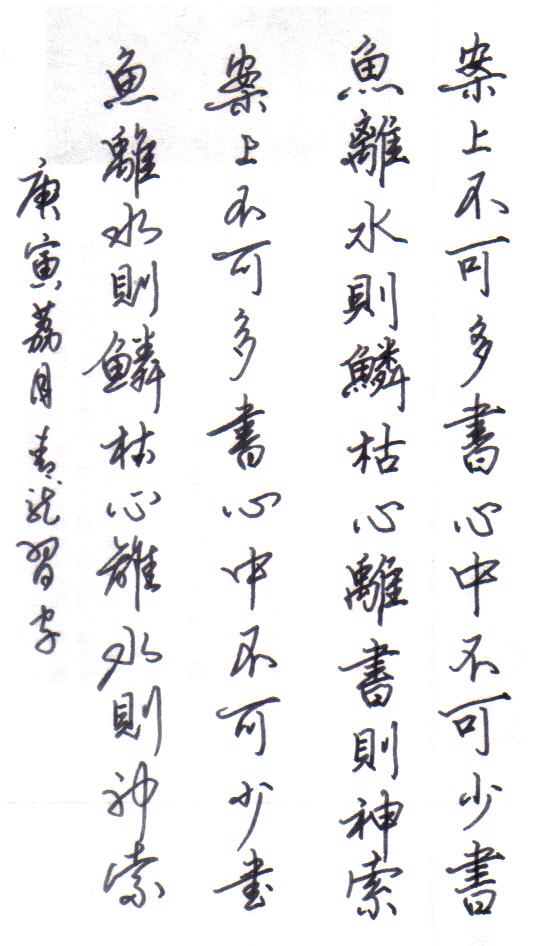 案上不可多書心中不可少書
魚離水則鱗枯心離書則神索
案上不可多書心中不可少書
魚離水則鱗枯心離水則神索
庚寅荔月青龙習字